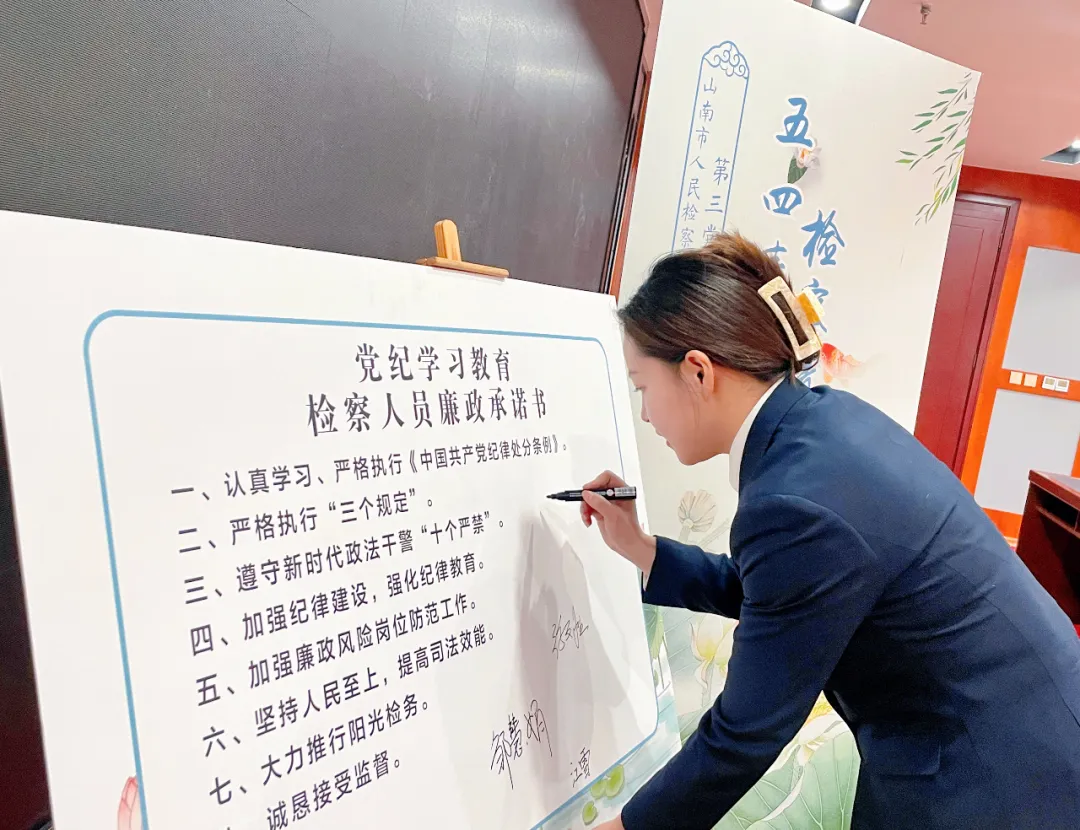 党纪学习教育
检察人员廉政承诺书
一、认真学习、严格执行《中国共产党纪律处分条例》。
二、严格执行“三个规定”。
三、遵守新时代政法干警“十个严禁”。
四、加强纪律建设，强化纪律教育。
五、加强廉政风险岗位防范工作。
六、坚持人民至上，提高司法效能。
七、大力推行阳光检务。
诚恳接受监督。
江雪
山南市人民检察
第三党
五四
检